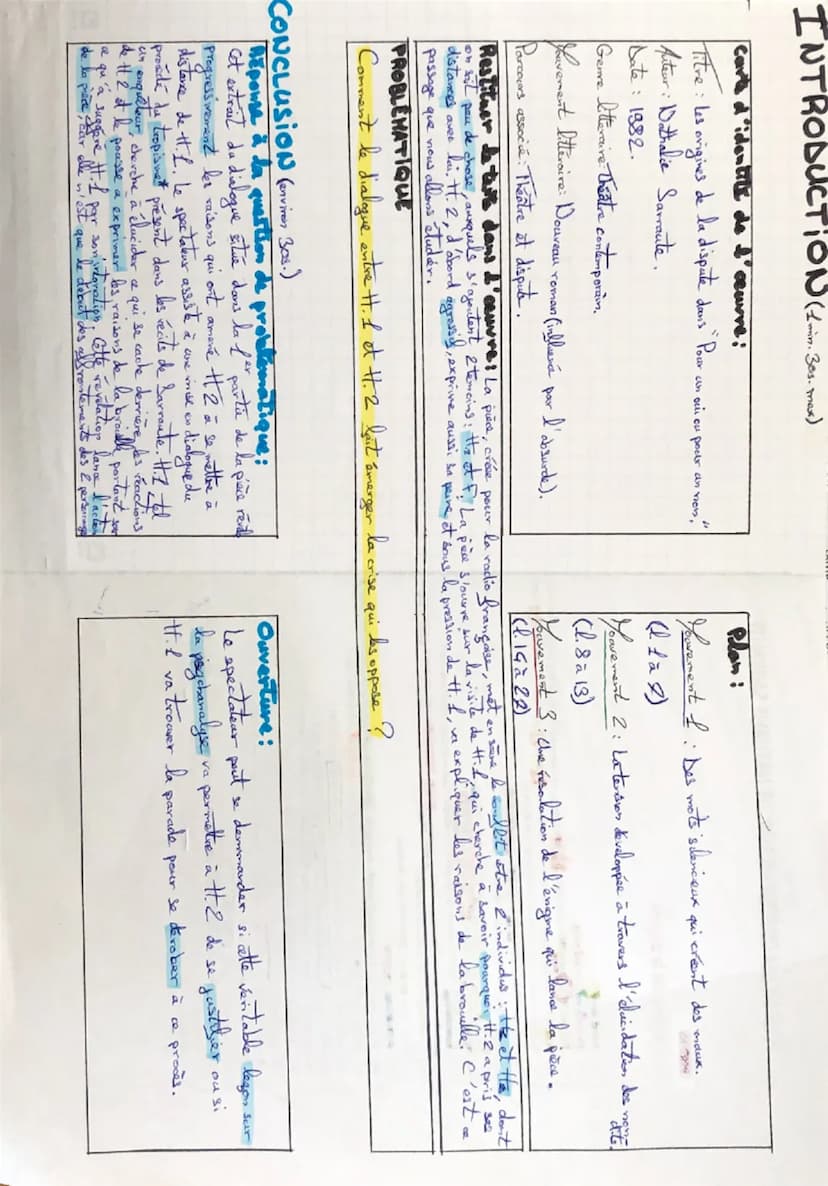 INTRODUCTION (1 min. 30s. max)
Carte d'identité de l'œuvre :
Titre : Les origines de la dispute dans "Pour un oui ou pour un non,"
Auteur : Nathalie Sarraute.
Date : 1982.
Genre littéraire : Théâtre contemporain.
Mouvement littéraire : Nouveau roman (influencé par l'absurde).
Parcours associé : Théâtre et dispute.
Plan :
Mouvement 1 : Des mots silencieux qui créent des maux.
(l. 1 à 7)
Mouvement 2 : La tension développée à travers l'élucidation des non-
dits.
(l. 8 à 13)
Mouvement 3 : Une résolution de l'énigme qui lance la pièce.
(l. 14 à 22)
Restituer le texte dans l'œuvre : La pièce, créée pour la radio française, met en scène le conflit entre 2 individus : H1 et H2, dont
on sait peu de chose, auxquels s'ajoutent 2 témoins : H3 et F. La pièce s'ouvre sur la visite de H.1, qui cherche à savoir pourquoi H.2 a pris ses
distances avec lui. H.2, d'abord agressif, exprime aussi sa peine et sous la pression de H.1, va expliquer les raisons de la brouille. C'est ce
passage que nous allons étudier.
PROBLÉMATIQUE
Comment le dialogue entre H.1 et H.2 fait émerger la crise qui les oppose ?
CONCLUSION (environ 30s.)
Réponse à la question de problématique :
Cet extrait du dialogue situé dans la 1er partie de la pièce révèle
progressivement les raisons qui ont amené H2 à se mettre à
distance de H.1. Le spectateur assiste à une mise en dialogue du
procédé du tropisme présent dans les récits de Sarraute. H.1 tel
un enquêteur cherche à élucider ce qui se cache derrière les réactions
de H2 et le pousse à exprimer les raisons de la brouille portant sur
ce qu'a suggéré H.1 par son intonation. Cette révélation lance l'action
de la pièce, car elle n'est que le début des affrontements des 2 personnages
Ouverture :
Le spectateur peut se demander si cette véritable leçon sur
la psychanalyse va permettre à H.2 de se justifier ou si
H.1 va trouver la parade pour se dérober à ce procès.